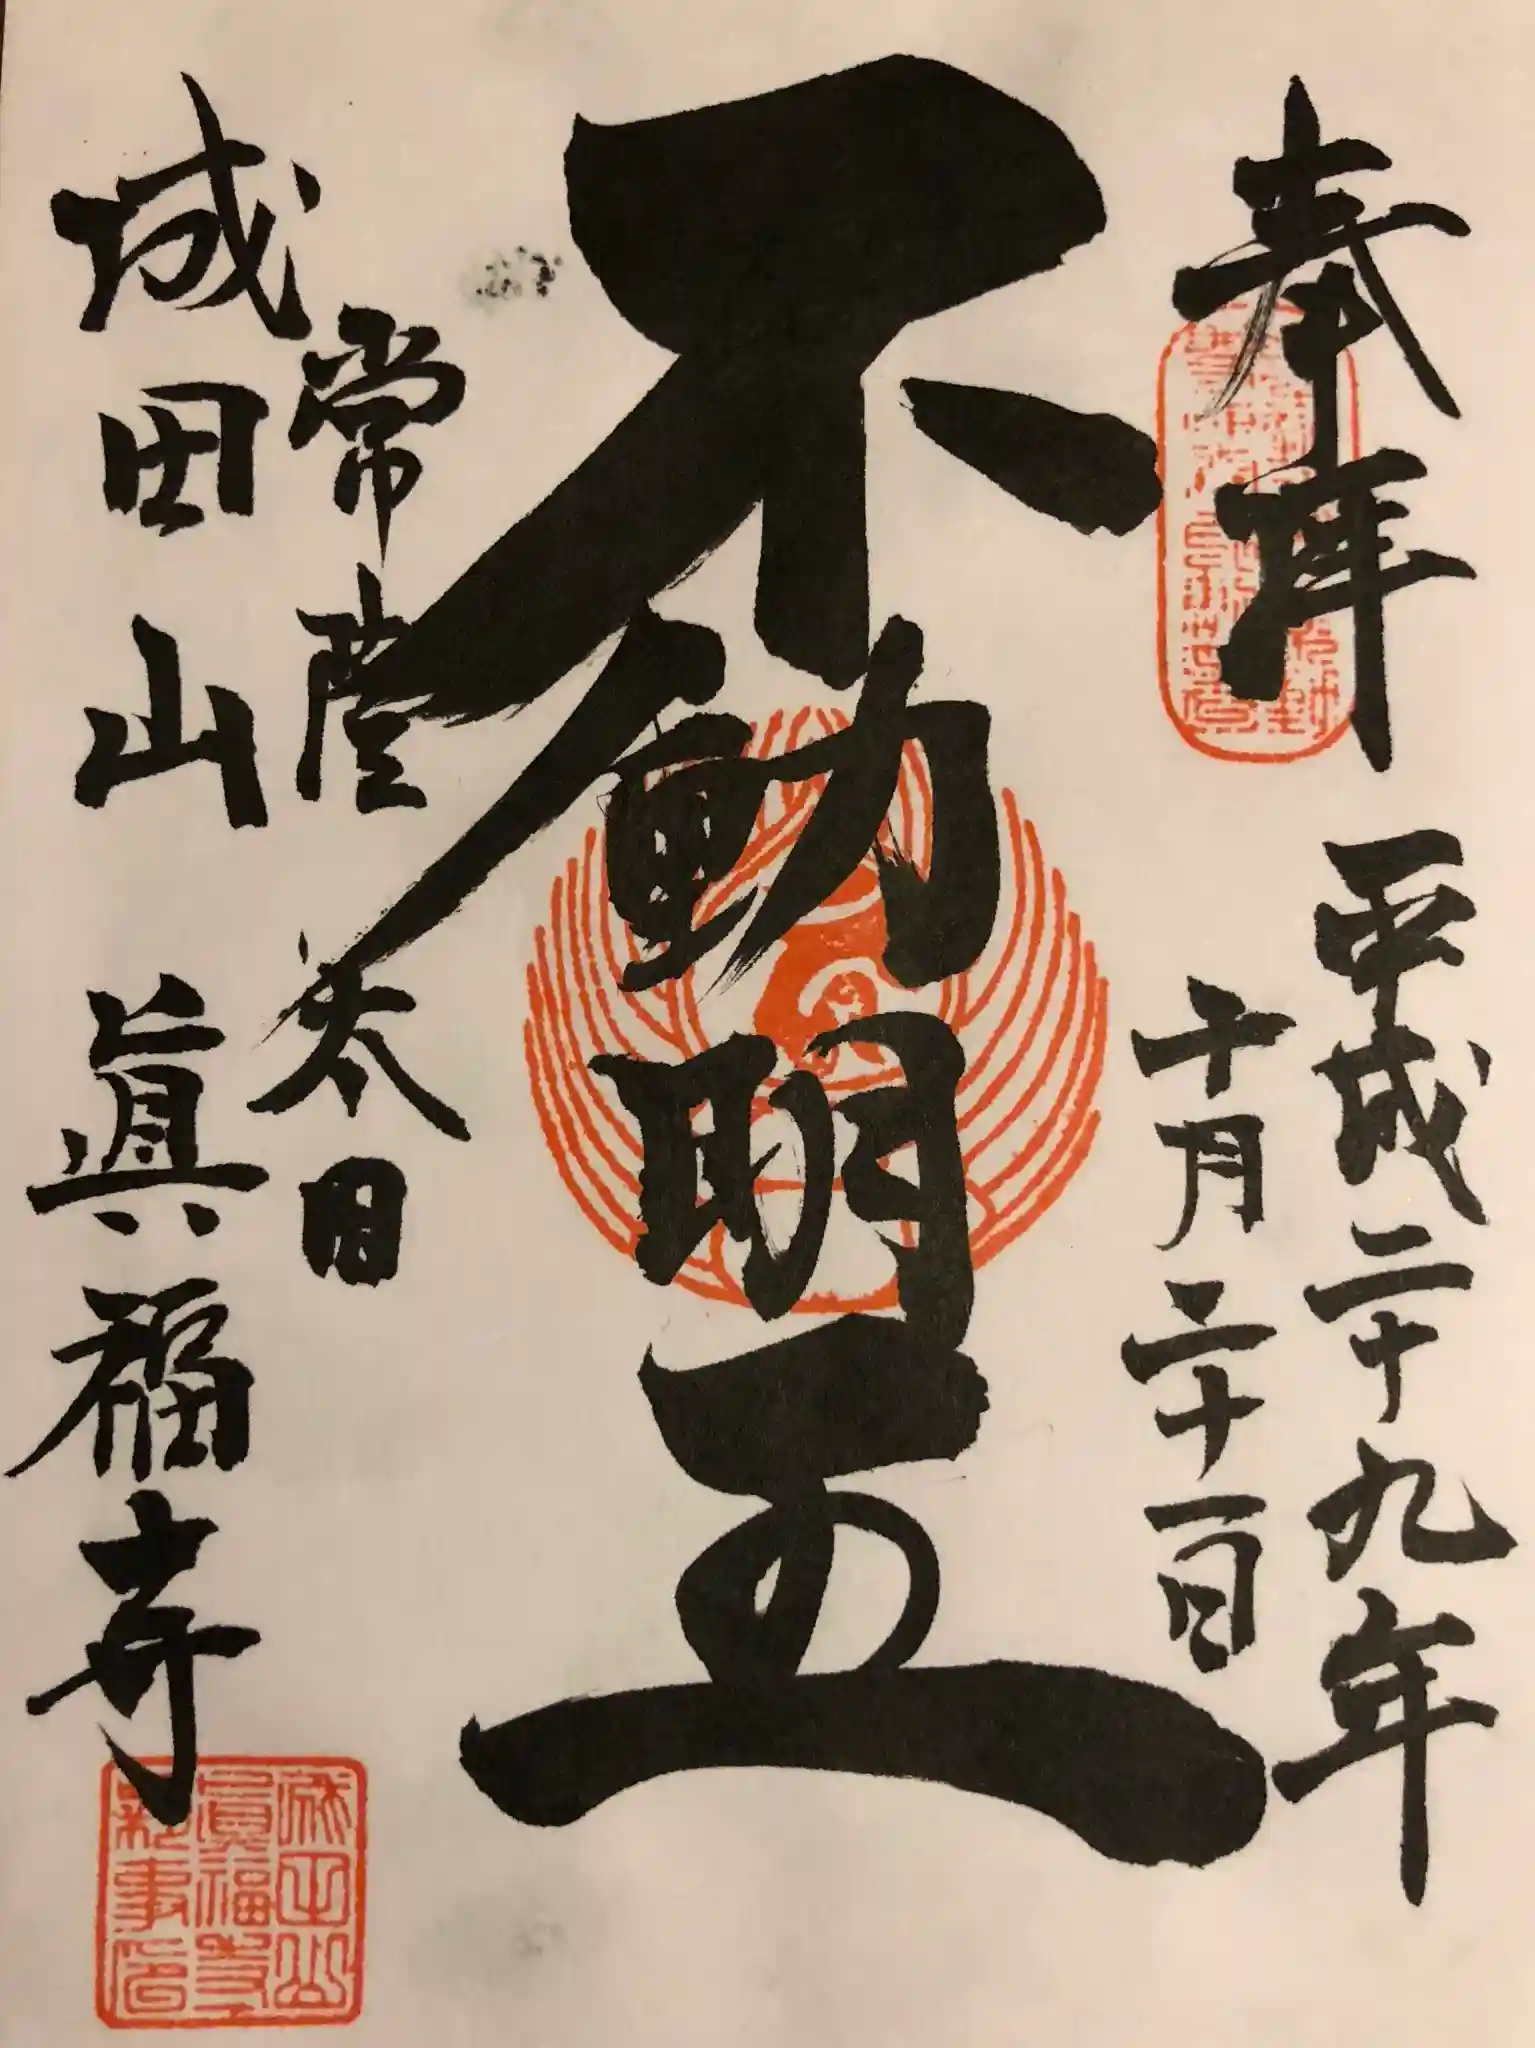 奉拝
平成二十九年
十月二十一日
不動明王
常陸太田
成田山 眞福寺
成田山
眞福寺
印